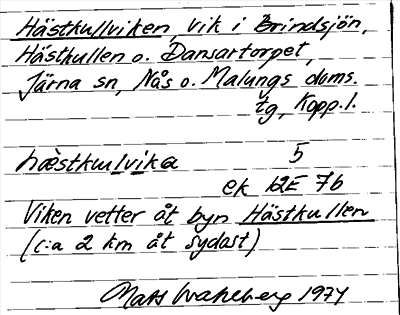 Hästkullviken, vik i Brindsjön,
Hästkullen o. Dansartorpet,
Järna sn, Nås o. Malungs doms.
tg, Kopp.l.
hæ̀stkuulvika 5
ek 12E 7b
Viken vetter åt byn Hästkullen
(c:a 2 km åt sydost)
Mats Wahlberg 1974